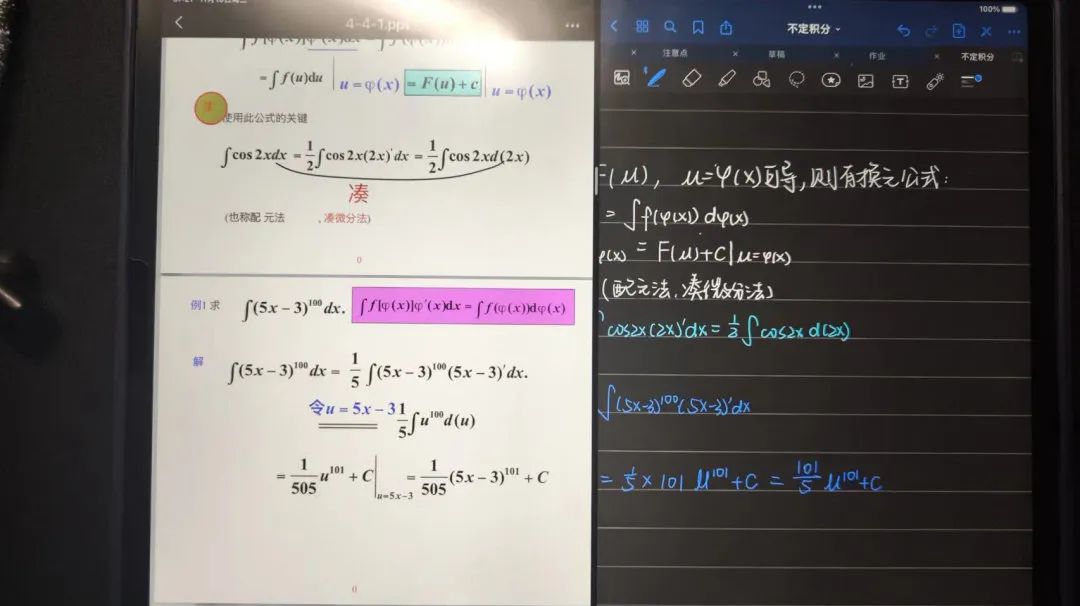 4-4-1.ppt
= ∫ f(u)du | u = φ(x) = F(u) + c | u = φ(x)
使用此公式的关键
∫cos 2xdx = 1/2 ∫cos 2x(2x)′dx = 1/2 ∫cos 2xd(2x)
凑
(也称配 元法 , 凑微分法)
0
例1 求 ∫(5x − 3)^100 dx. ∫ f[φ(x)]φ′(x)dx = ∫ f(φ(x))dφ(x)
解 ∫(5x − 3)^100 dx = 1/5 ∫(5x − 3)^100 (5x − 3)′dx.
令u = 5x − 3 1/5 ∫u^100 d(u)
= 1/505 u^101 + C |u=5x−3 = 1/505 (5x − 3)^101 + C
0
100%
不定积分
注意点 草稿 作业 不定积分
F(u), u=φ(x)可导,则有换元公式:
= ∫f(φ(x)) dφ(x)
φ(x) = F(u)+C|u=φ(x)
(配元法,凑微分法)
cos2x(2x)′dx = 1/2 ∫cos2x d(2x)
∫(5x-3)^100 (5x-3)′dx
= 1/5 × 101 u^101 + C = 101/5 u^101 + C